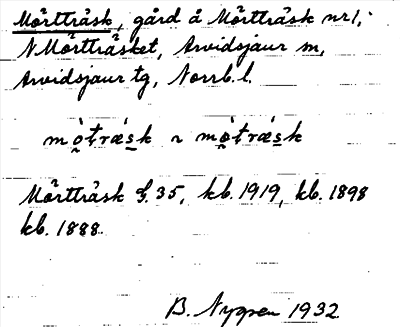 Mörtträsk, gård å Mörtträsk nr 1,
N Mörtträsket, Arvidsjaur sn,
Arvidsjaur tg, Norrb. l.
mò̤ţrǽsk ~ mò̤ţræ̀sk
Mörtträsk G. 35, kb. 1919, kb. 1898
kb. 1888.
B. Nygren 1932